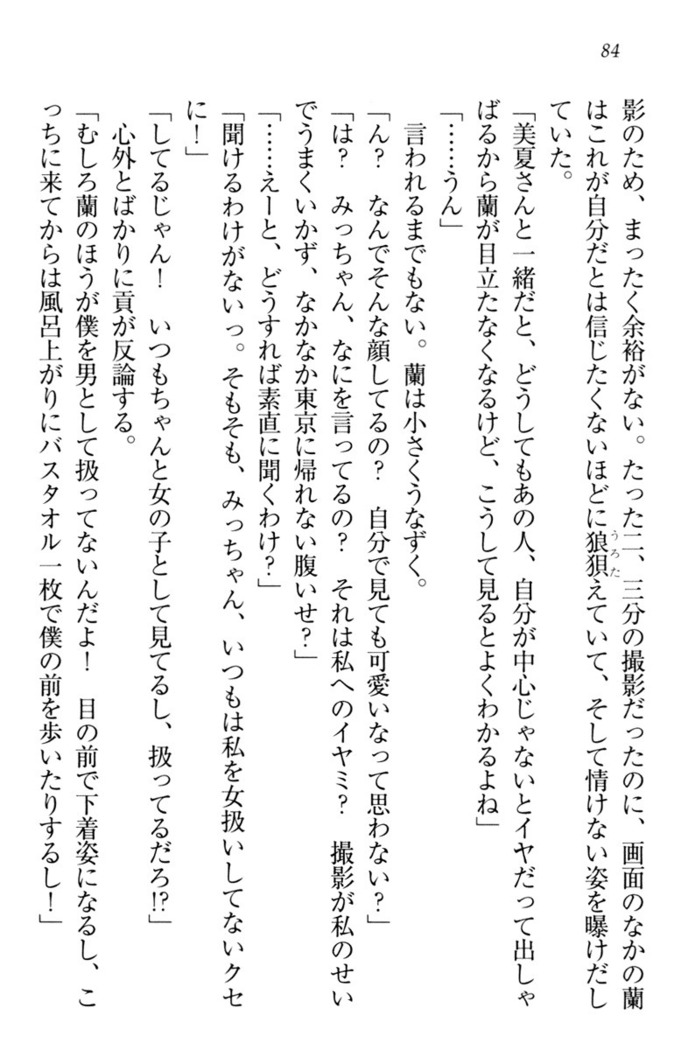 84
影のため、まったく余裕がない。たった二、三分の撮影だったのに、画面のなかの蘭
はこれが自分だとは信じたくないほどに狼狽えていて、そして情けない姿を曝けだし
うろた
ていた。
「美夏さんと一緒だと、どうしてもあの人、自分が中心じゃないとイヤだって出しゃ
ばるから蘭が目立たなくなるけど、こうして見るとよくわかるよね」
「……うん」
言われるまでもない。蘭は小さくうなずく。
「ん？　なんでそんな顔してるの？　自分で見ても可愛いなって思わない？」
「は？　みっちゃん、なにを言ってるの？　それは私へのイヤミ？　撮影が私のせい
でうまくいかず、なかなか東京に帰れない腹いせ？」
「……えーと、どうすれば素直に聞くわけ？」
「聞けるわけがないっ。そもそも、みっちゃん、いつもは私を女扱いしてないクセ
に！」
「してるじゃん！　いつもちゃんと女の子として見てるし、扱ってるだろ!?」
心外とばかりに貢が反論する。
「むしろ蘭のほうが僕を男として扱ってないんだよ！　目の前で下着姿になるし、こ
っちに来てからは風呂上がりにバスタオル一枚で僕の前を歩いたりするし！」